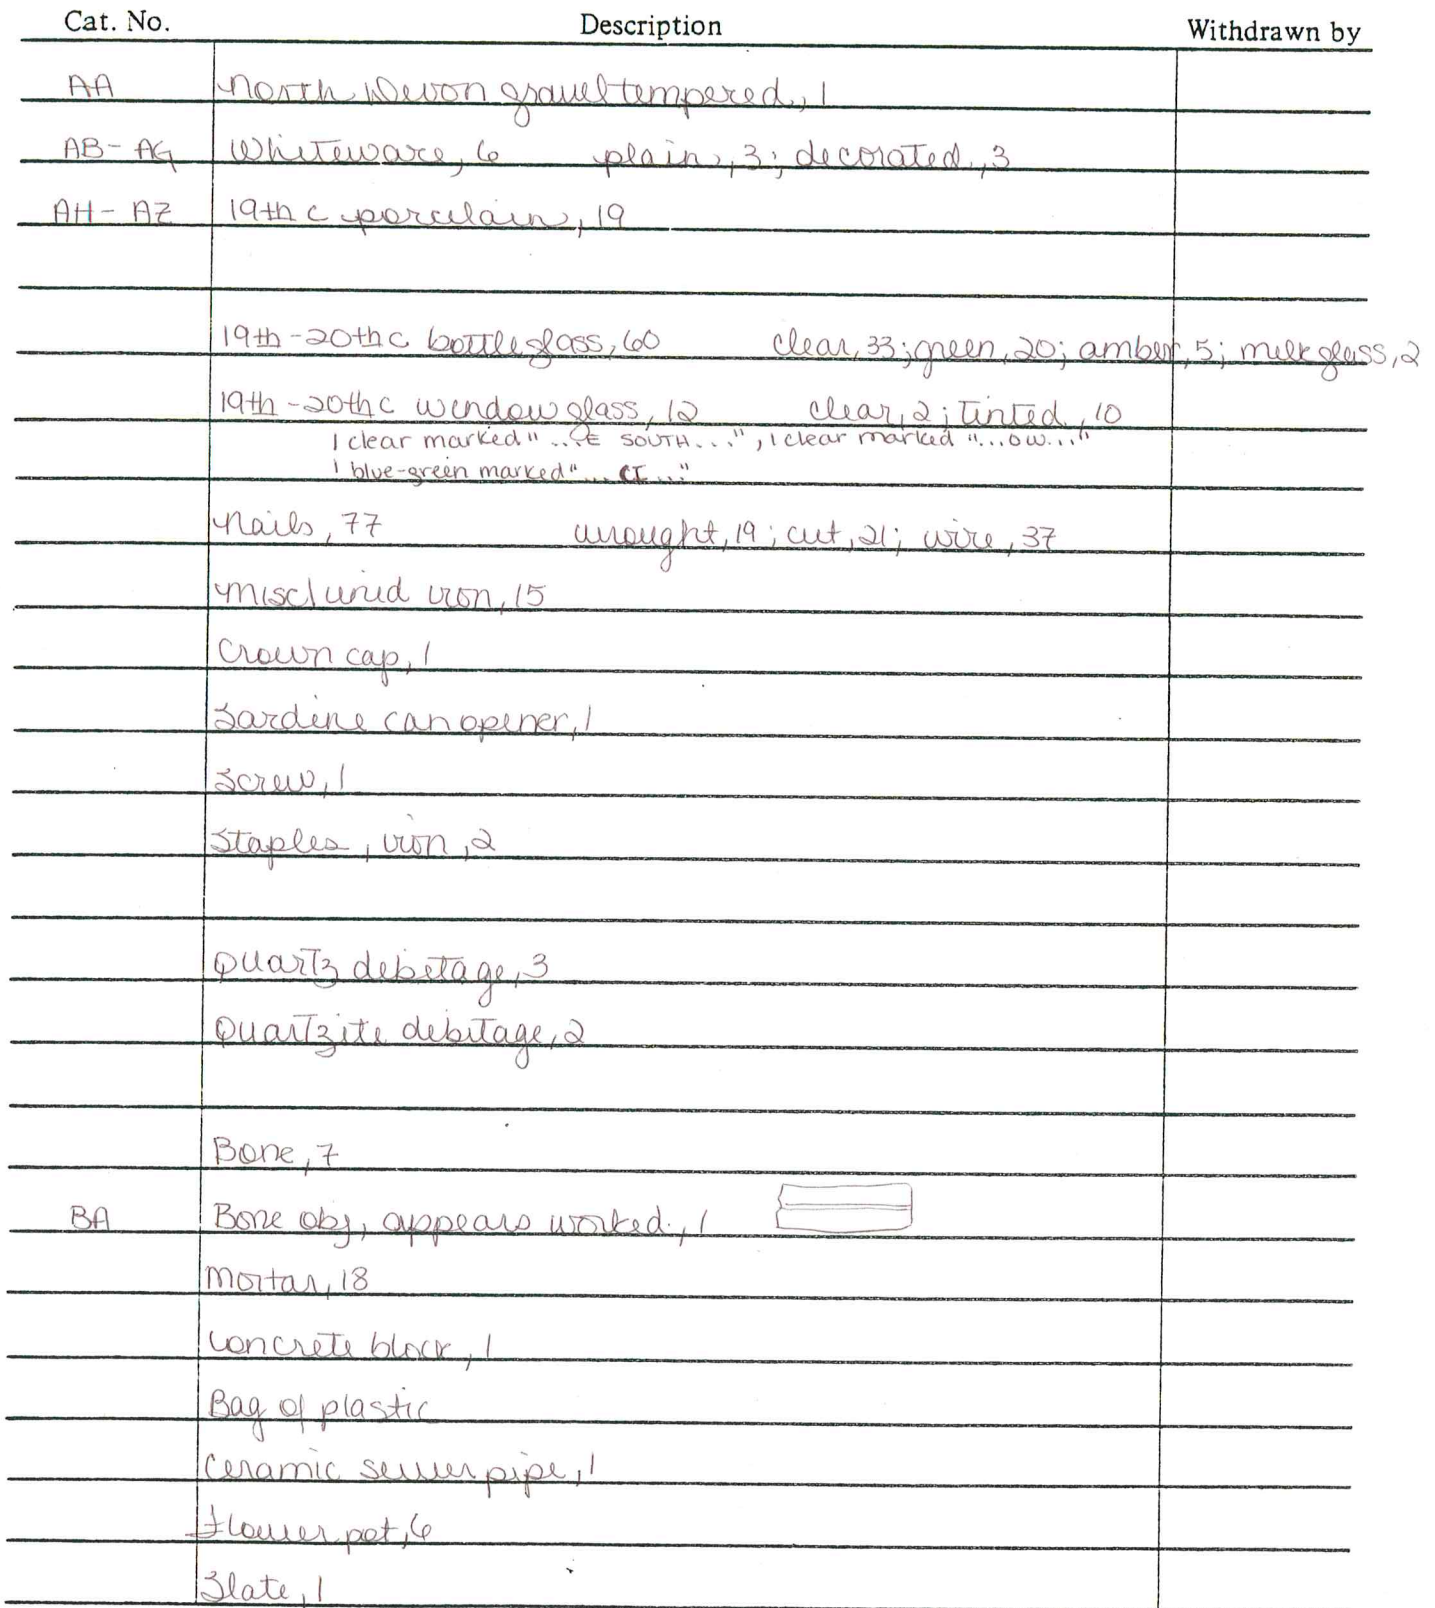 Cat. No. Description Withdrawn by
AA North Devon gravel tempered, 1
AB-AG Whiteware, 6 plain, 3; decorated, 3
AH-AZ 19th c porcelain, 19
19th-20th c bottle glass, 60 clear, 33; green, 20; amber, 5; milk glass, 2
19th-20th c window glass, 12 clear, 2; tinted, 10
1 clear marked "...E SOUTH...", 1 clear marked "...OW..."
1 blue-green marked "...CI..."
Nails, 77 wrought, 19; cut, 21; wire, 37
Misc/unid iron, 15
Crown cap, 1
Sardine can opener, 1
Screw, 1
Staples, iron, 2
Quartz debitage, 3
Quartzite debitage, 2
Bone, 7
BA Bone obj, appears worked, 1
Mortar, 18
Concrete block, 1
Bag of plastic
Ceramic sewer pipe, 1
Flower pot, 6
Slate, 1